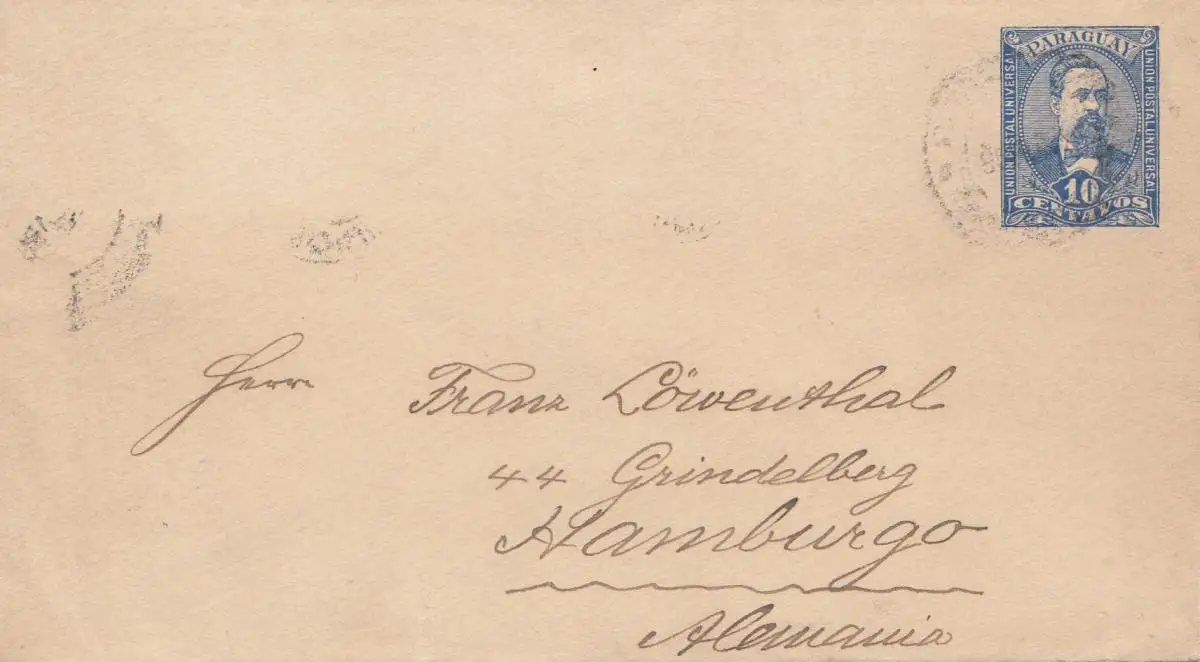 PARAGUAY
UNION POSTAL UNIVERSAL
UNION POSTAL UNIVERSAL
10
CENTAVOS
Herrn
Franz Löwenthal
44 Grindelberg
Hamburgo
Alemania